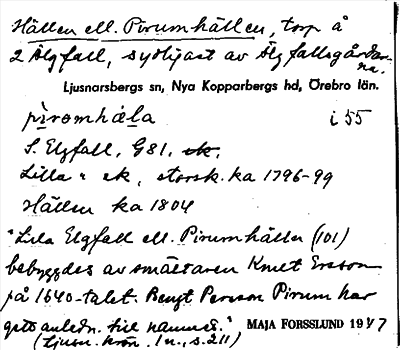 Hällen ell. Pirumhällen, torp å
2 Älgfall, sydligast av Älgfallsgårdar-
na.
Ljusnarsbergs sn, Nya Kopparbergs hd, Örebro län.
piromhäla i 55
S. Elgfall, G81, ek.
Lilla " ek, storsk.ka 1796-99
Hällen ka 1804
"Lilla Elgfall ell. Pirumhällen (101)
bebyggdes av smältaren Knut Ersson
på 1640-talet. Bengt Persson Pirum har
gett anledn. till namnet."
(Ljusn. krön. 1 u., s. 211) MAJA FORSSLUND 1947